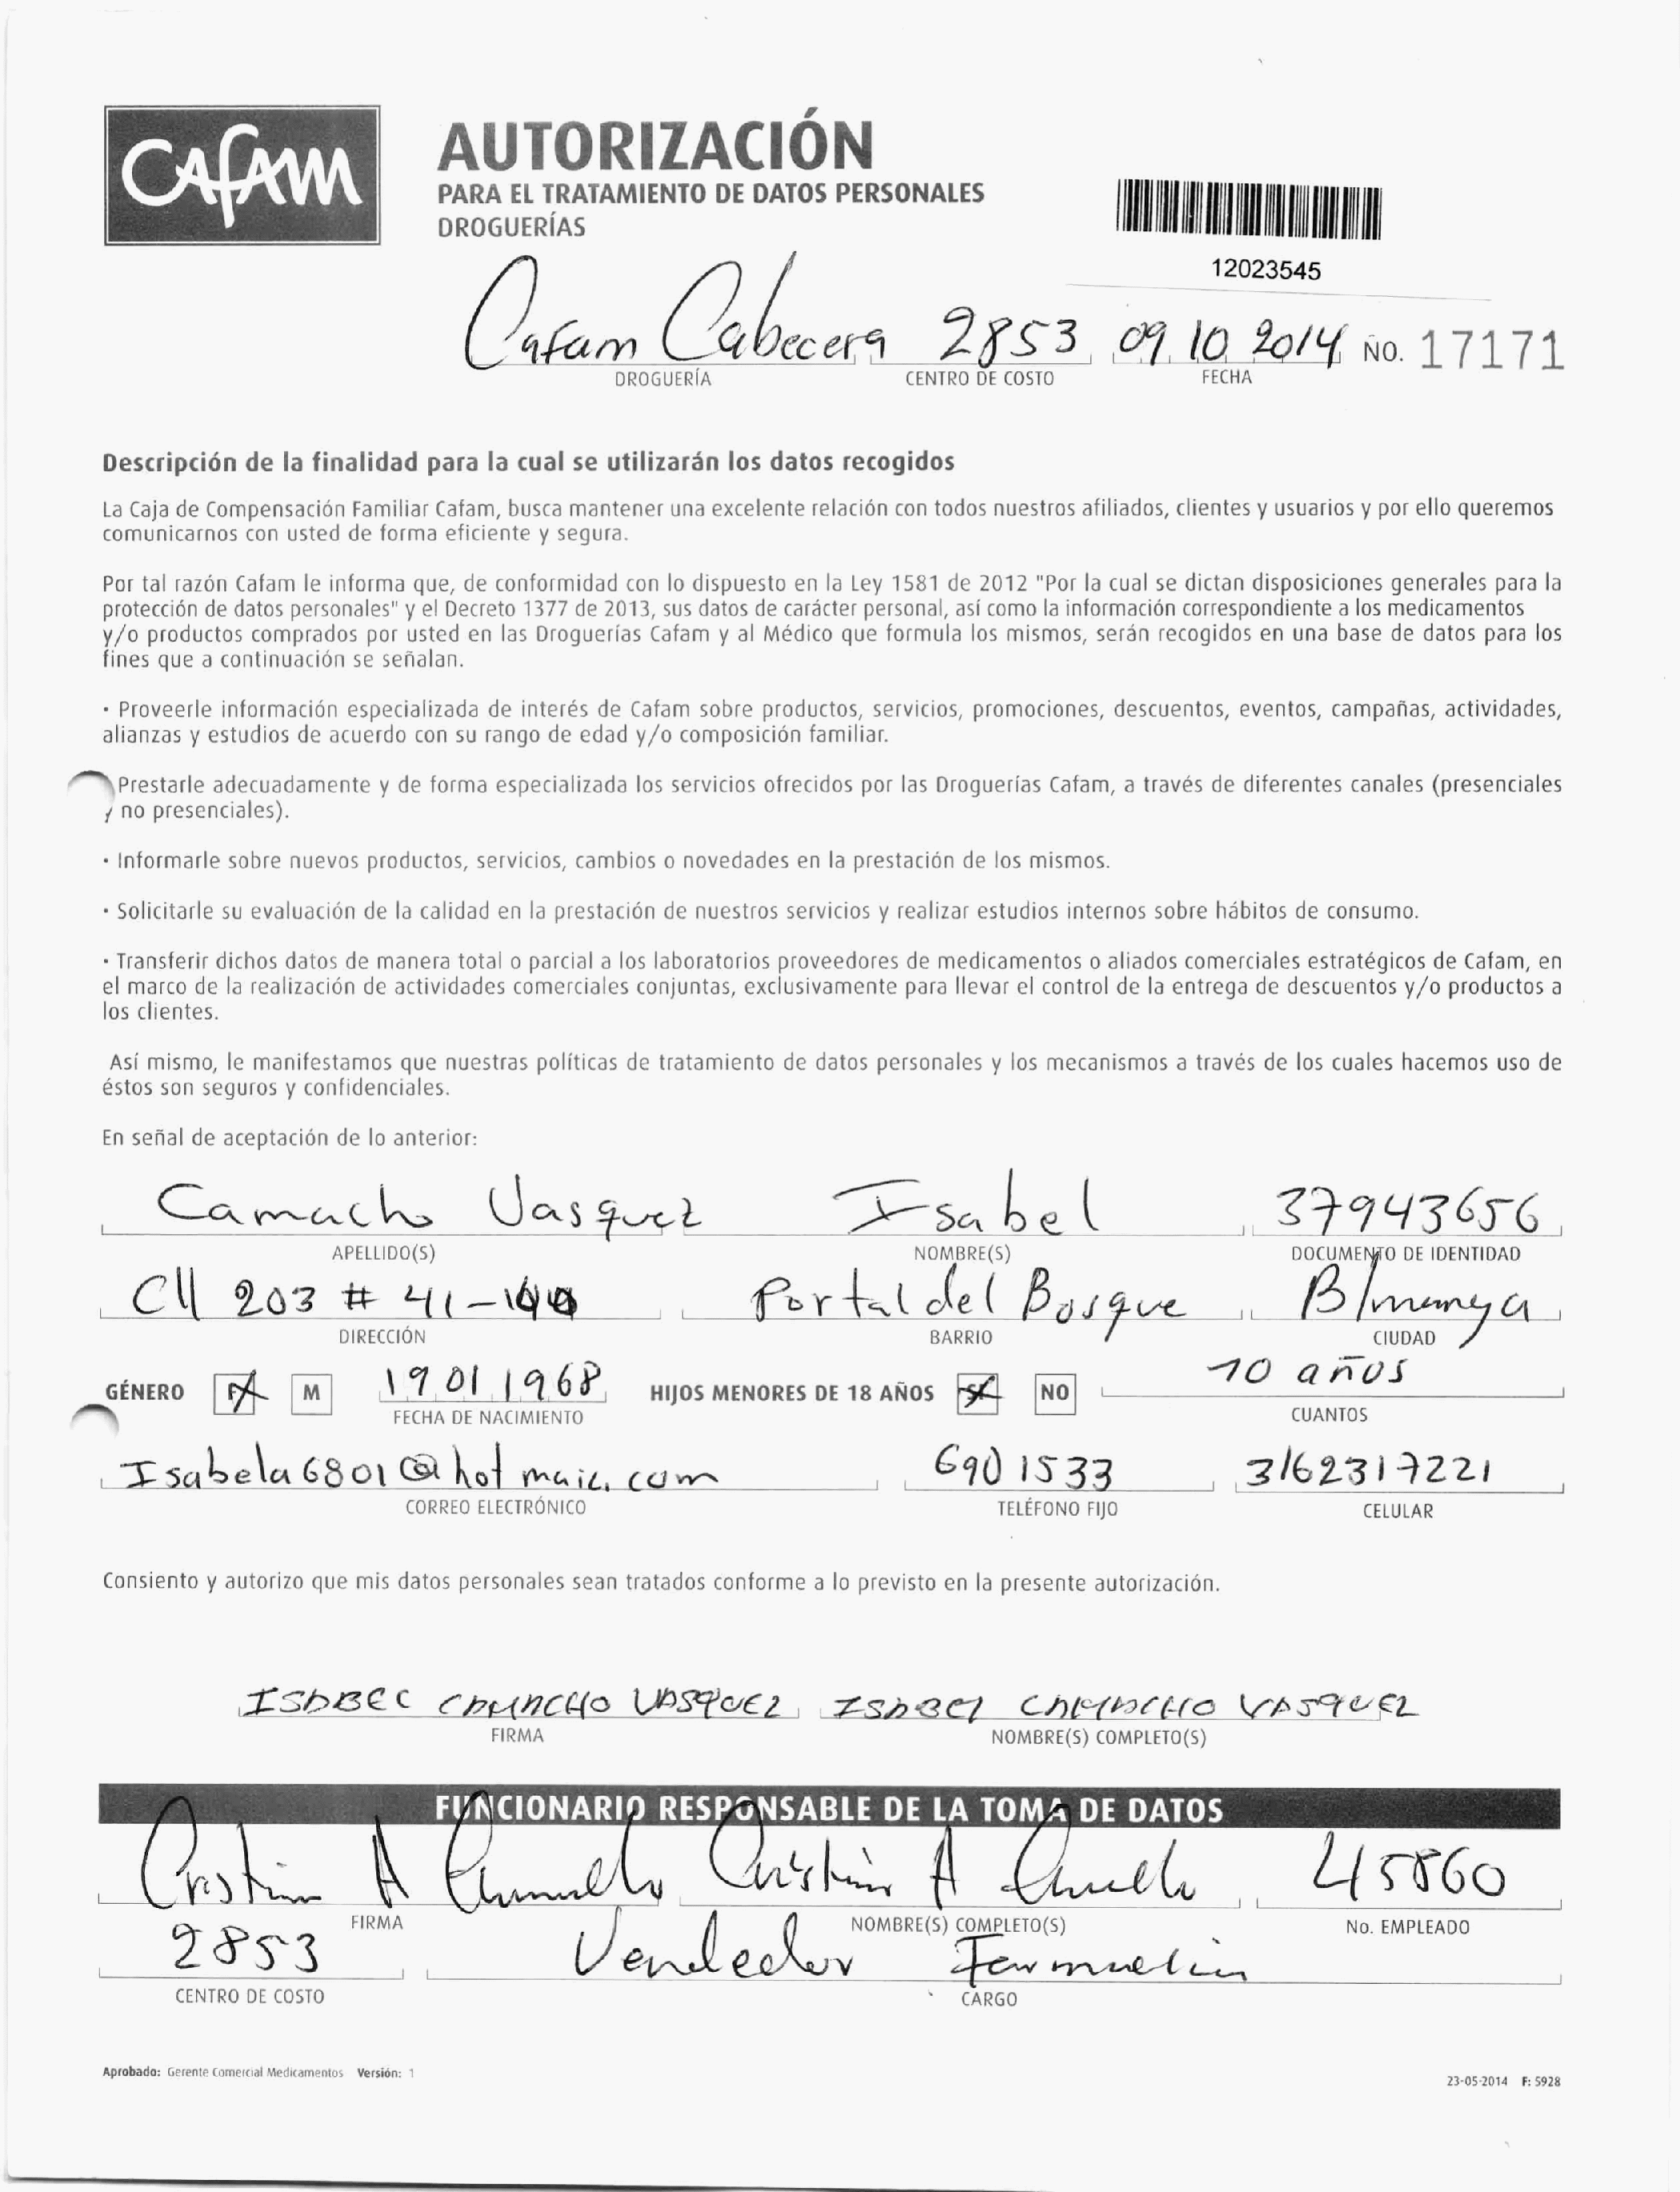 CAFAM
AUTORIZACIÓN
PARA EL TRATAMIENTO DE DATOS PERSONALES
DROGUERÍAS
12023545
Cafam Cabecera 2853 09 10 2014 NO. 17171
DROGUERÍA CENTRO DE COSTO FECHA
Descripción de la finalidad para la cual se utilizarán los datos recogidos
La Caja de Compensación Familiar Cafam, busca mantener una excelente relación con todos nuestros afiliados, clientes y usuarios y por ello queremos
comunicarnos con usted de forma eficiente y segura.
Por tal razón Cafam le informa que, de conformidad con lo dispuesto en la Ley 1581 de 2012 "Por la cual se dictan disposiciones generales para la
protección de datos personales" y el Decreto 1377 de 2013, sus datos de carácter personal, así como la información correspondiente a los medicamentos
y/o productos comprados por usted en las Droguerías Cafam y al Médico que formula los mismos, serán recogidos en una base de datos para los
fines que a continuación se señalan.
· Proveerle información especializada de interés de Cafam sobre productos, servicios, promociones, descuentos, eventos, campañas, actividades,
alianzas y estudios de acuerdo con su rango de edad y/o composición familiar.
Prestarle adecuadamente y de forma especializada los servicios ofrecidos por las Droguerías Cafam, a través de diferentes canales (presenciales
y no presenciales).
· Informarle sobre nuevos productos, servicios, cambios o novedades en la prestación de los mismos.
· Solicitarle su evaluación de la calidad en la prestación de nuestros servicios y realizar estudios internos sobre hábitos de consumo.
· Transferir dichos datos de manera total o parcial a los laboratorios proveedores de medicamentos o aliados comerciales estratégicos de Cafam, en
el marco de la realización de actividades comerciales conjuntas, exclusivamente para llevar el control de la entrega de descuentos y/o productos a
los clientes.
Así mismo, le manifestamos que nuestras políticas de tratamiento de datos personales y los mecanismos a través de los cuales hacemos uso de
éstos son seguros y confidenciales.
En señal de aceptación de lo anterior:
Camacho Vasquez Isabel 37943656
APELLIDO(S) NOMBRE(S) DOCUMENTO DE IDENTIDAD
Cll 203 # 41-140 Portal del Bosque B/manga
DIRECCIÓN BARRIO CIUDAD
GÉNERO F M 19 01 1968 HIJOS MENORES DE 18 AÑOS SI NO 10 años
FECHA DE NACIMIENTO CUANTOS
Isabela6801@hotmail.com 690 1533 3162317221
CORREO ELECTRÓNICO TELÉFONO FIJO CELULAR
Consiento y autorizo que mis datos personales sean tratados conforme a lo previsto en la presente autorización.
ISABEL CAMACHO VASQUEZ ISABEL CAMACHO VASQUEZ
FIRMA NOMBRE(S) COMPLETO(S)
FUNCIONARIO RESPONSABLE DE LA TOMA DE DATOS
Cristian A Cristian A 45860
FIRMA NOMBRE(S) COMPLETO(S) No. EMPLEADO
2853 Vendedor
CENTRO DE COSTO CARGO
Aprobado: Gerente Comercial Medicamentos Versión: 1
23-05-2014 F: 5928